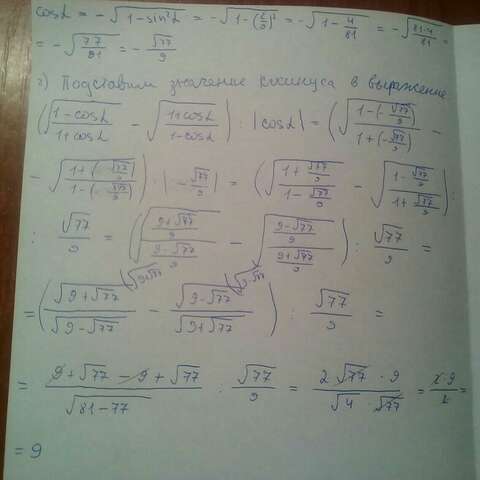 cosα = −√(1−sin²α) = −√(1−(2/9)²) = −√(1−4/81) = −√((81−4)/81) =
= −√(77/81) = −√77/9
2) Подставим значение косинуса в выражение
(√((1−cosα)/(1+cosα)) − √((1+cosα)/(1−cosα))) : |cosα| = (√((1−(−√77/9))/(1+(−√77/9))) −
− √((1+(−√77/9))/(1−(−√77/9)))) : |−√77/9| = (√((1+√77/9)/(1−√77/9)) − √((1−√77/9)/(1+√77/9))) :
: √77/9 = (√(((9+√77)/9)/((9−√77)/9)) − √(((9−√77)/9)/((9+√77)/9))) : √77/9 =
= (√(9+√77)/√(9−√77) − √(9−√77)/√(9+√77)) : √77/9 =
= (9+√77−9+√77)/√(81−77) : √77/9 = (2√77·9)/(√4·√77) = (2·9)/2 =
= 9